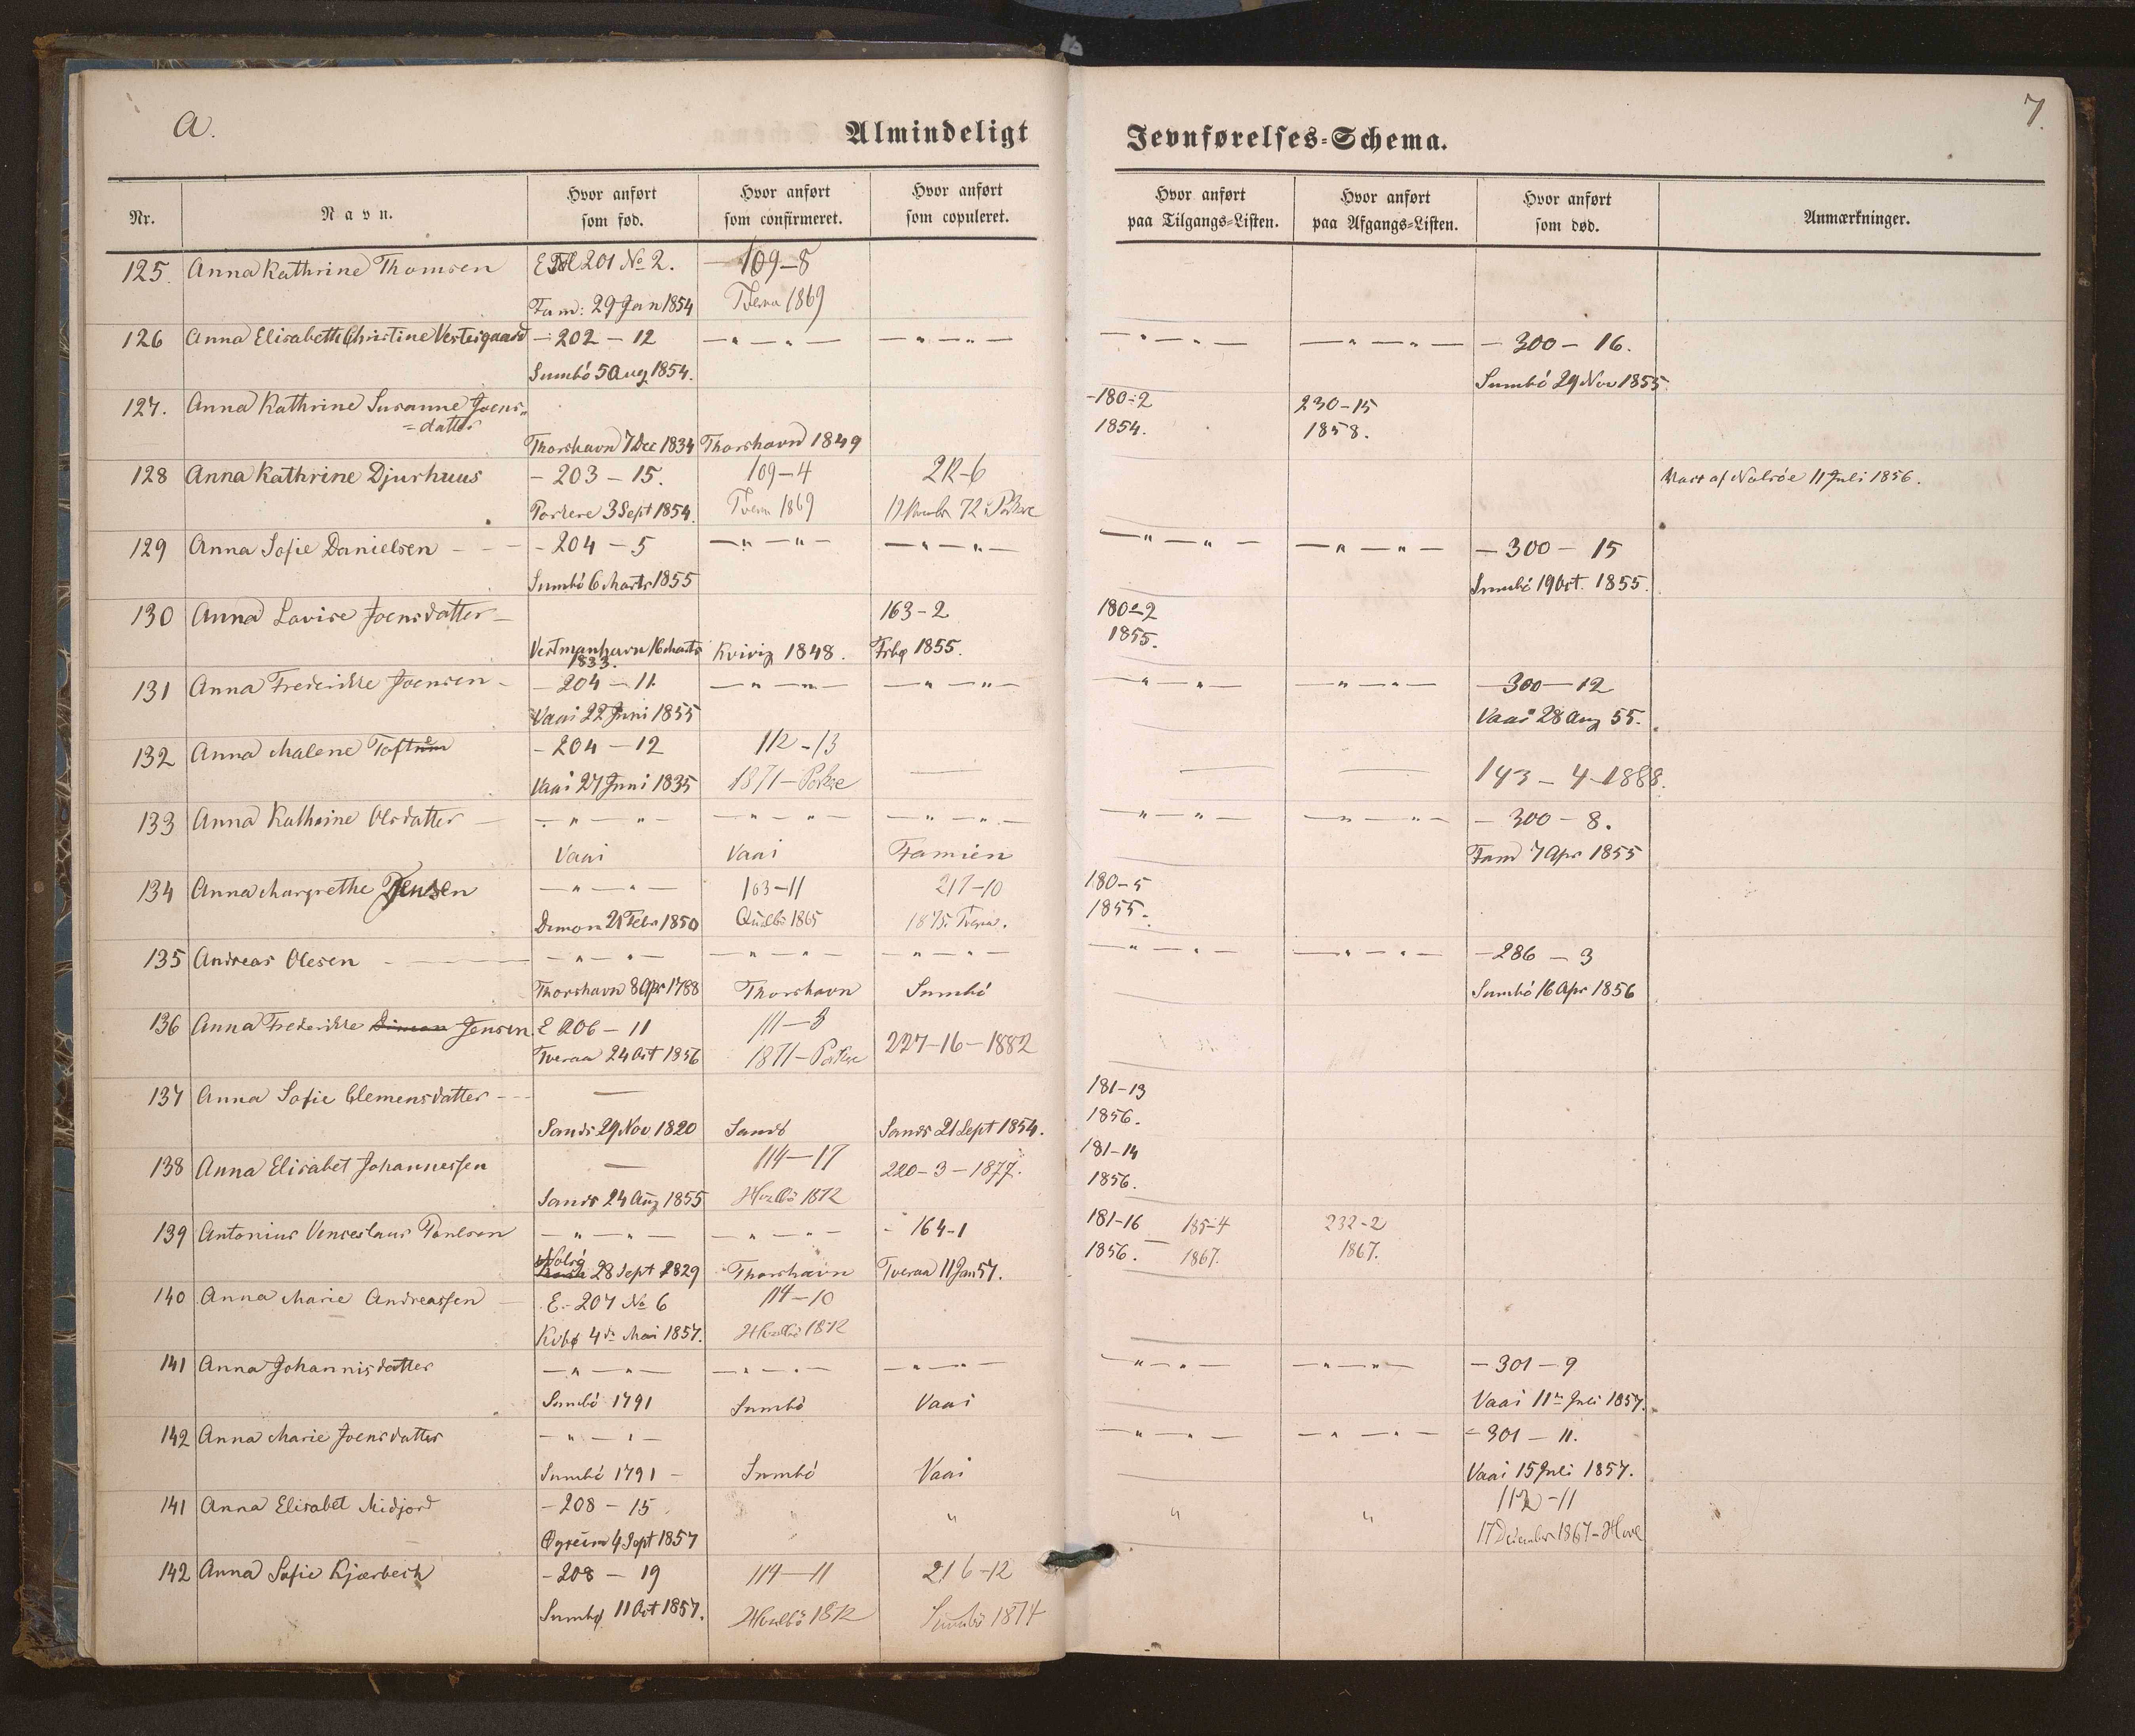 a.
Almindeligt
Jevnførelses-Schema.
7.
Nr.
Navn.
Hvor anført som fød.
Hvor anført som confirmeret.
Hvor anført som copuleret.
Hvor anført paa Tilgangs-Listen.
Hvor anført paa Afgangs-Listen.
Hvor anført som død.
Anmærkninger.
125. Anna Kathrine Thomsen 201 No 2. — 109–8
Fam: 29 Jan 1854 Tvera 1869
126 Anna Elisabeth Christine Vestergaard – 202 – 12 — " — " — — " — " — — " — " — — " — " — – 300 – 16.
Sumbö 5 Aug 1854. Sumbö 29 Nov 1855.
127. Anna Kathrine Susanne Joens- -180-2 230-15
=datter 1854. 1858.
Thorshavn 7 Dec 1834 Thorshavn 1849
128 Anna Kathrine Djurhuus – 203 – 15. 109–4 212-6 Vacc af Nolsöe 11 Juli 1856.
Porkere 3 Sept 1854. Tvera 1869
129 Anna Sofie Danielsen – 204 – 5 — " — " — — " — " — — " — " — — " — " — – 300 – 15
Sumbö 6 Marts 1855 Sumbö 19 Oct. 1855.
130 Anna Lovise Joensdatter 163-2 180-2
Vestmanhavn 16 Marts Kvivig 1848. Frbg 1855. 1855.
1833.
131 Anna Frederikke Joensen – 204 – 11. — " — " — — " — " — — " — " — — " — " — – 300 – 12
Vaai 22 Juni 1855 Vaai 28 Aug 55.
132 Anna Malene Tofte – 204 – 12 112-13 — — — 143 – 4-1888.
Vaai 27 Juni 1835 1871 – Porkere
133 Anna Kathrine Olsdatter — " — " — — " — " — — " — " — — " — " — — " — " — – 300 – 8.
Vaai Vaai Famien Fam 7 Apr 1855
134 Anna Margrethe Jensen — " — " — 103–11 217–10 180-5
Dimon 21 Febr 1850 Qualbö 1865 1875. Tvera. 1855.
135 Andreas Olesen — " — " — — " — " — — " — " — — " — " — — " — " — – 286 – 3
Thorshavn 8 Apr 1788 Thorshavn Sumbö Sumbö 16 Apr 1856
136 Anna Frederikke Simon Jensen E 206 – 11 111–3 227–16–1882
Tveraa 24 Oct 1856 1871 – Porkere
137 Anna Sofie Clemensdatter — 181-13
Sands 29 Nov 1820 Sands Sands 21 Sept 1854. 1856.
138 Anna Elisabet Johannessen — 114–17 220–3–1877. 181-14
Sands 24 Aug 1855 Hvalbö 1872 1856.
139 Antonius Venceslaus Poulsen — " — " — — " — " — – 164-1 181-16 185-4 232-2
Nolsö 28 Sept 1829 Thorshavn Tveraa 11 Jan 57. 1856. 1867. 1867.
140 Anna Marie Andreassen E. – 207 No 6 114–10
4de Mai 1857. Hvalbö 1872
141 Anna Johannisdatter — " — " — — " — " — — " — " — — " — " — — " — " — – 301 – 9
Sumbö 1791 Sumbö Vaai Vaai 11te Juli 1857.
142 Anna Marie Joensdatter — " — " — — " — " — — " — " — – 301 – 11.
Sumbö 1791 – Sumbö Vaai Vaai 15 Juli 1857.
141 Anna Elisabet Midjord – 208 – 15 " " " " 112-11
Øgreim 4 Sept 1857 17 December 1867 – Hove
142 Anna Sofie Kjærbech – 208 – 19 114–11 216–12
Sumbø 11 Oct 1857. Hvalbö 1872 Sumbö 1874